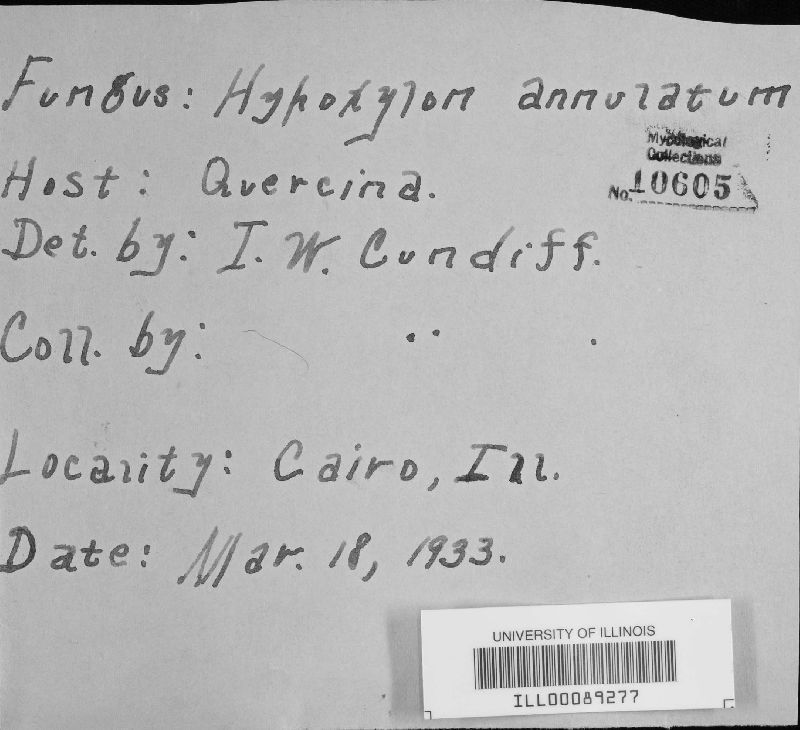 Fungus: Hypoxylon annulatum
Mycological
Collections
No. 10605
Host: Quercina.
Det. by: I. W. Cundiff.
Coll. by: " .
Locality: Cairo, Ill.
Date: Mar. 18, 1933.
UNIVERSITY OF ILLINOIS
ILL00089277